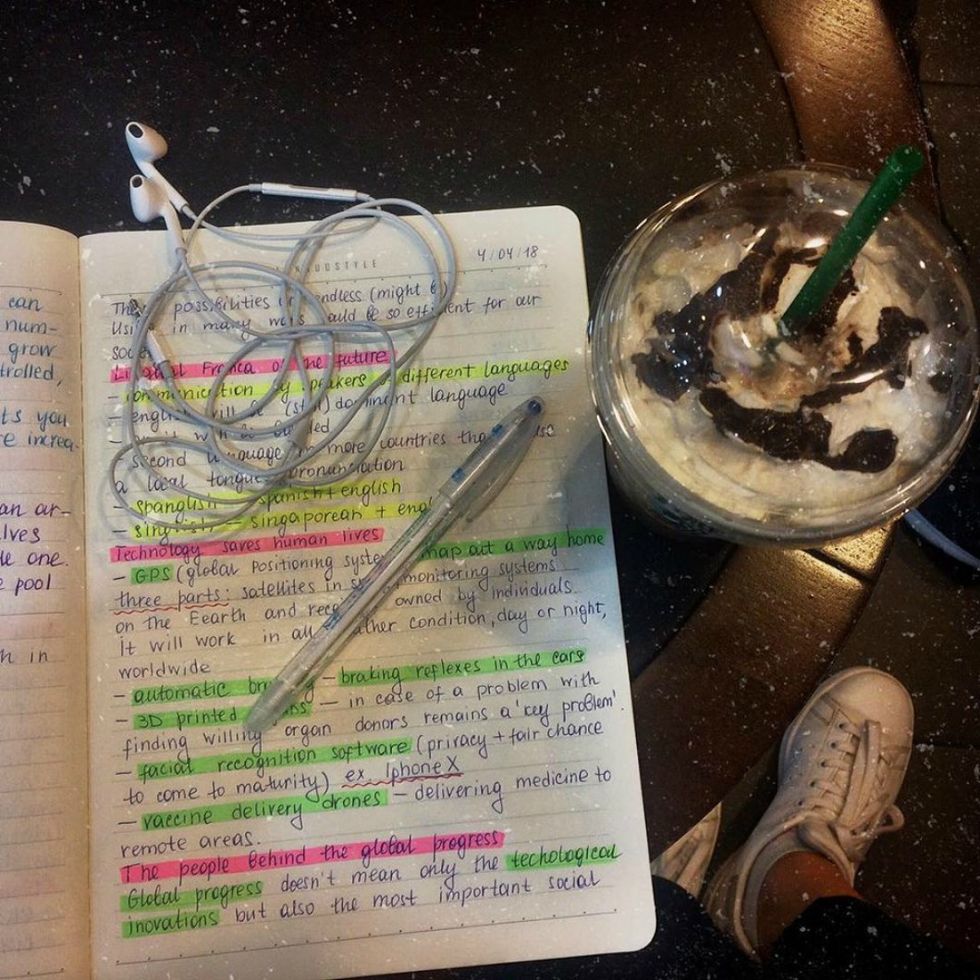 can
num-
grow
trolled,
ts you
re increa-
an ar-
lves
le one.
e pool
h in
4/04/18
NNUOSTYLE
possibilities endless (might b
in many ways be so for our
soc
Lingual Franca of the future
communication by speakers different languages
english will be (still) dominent language
second language more countries
a local tongue pronunciation
- Spanglish - spanish + english
- singlish - singaporean + eng
Technology saves human lives
- GPS (global positioning syste map out a way home
three parts: satellites in s monitoring systems
on the Eearth and rece owned by individuals.
it will work in all ather condition, day or night,
worldwide
- automatic br - braking reflexes in the cars
- 3D printed ns - in case of a problem with
finding willing organ donors remains a 'key problem'.
- facial recognition software (privacy + fair chance
to come to maturity) ex. Iphone X
- vaccine delivery drones - delivering medicine to
remote areas.
The people behind the global progress
Global progress doesn't mean only the techological
inovations but also the most important social